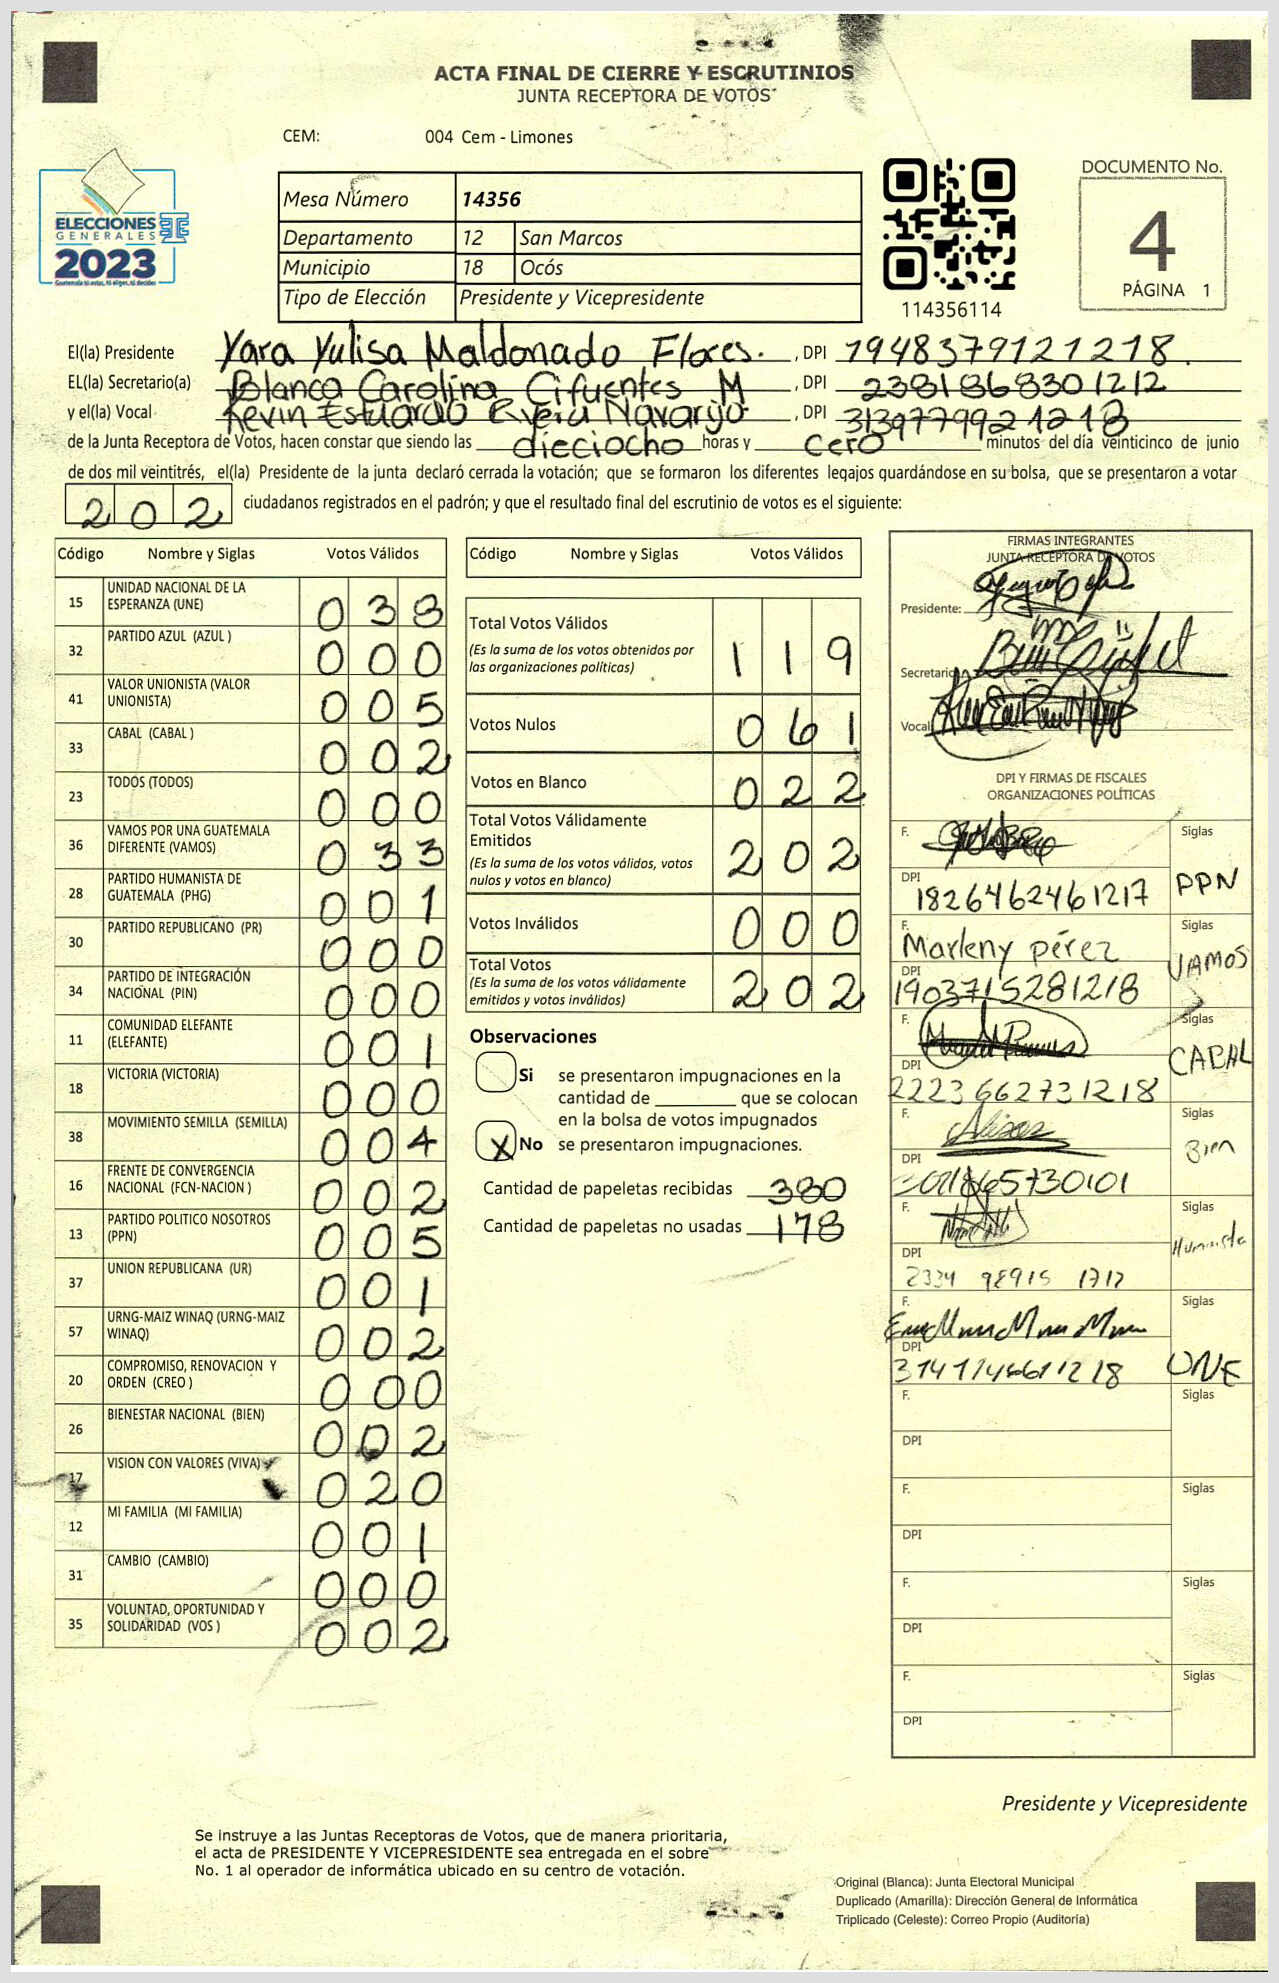 ACTA FINAL DE CIERRE Y ESCRUTINIOS
JUNTA RECEPTORA DE VOTOS
CEM: 004 Cem - Limones
ELECCIONES
GENERALES
2023
Mesa Número 14356
Departamento 12 San Marcos
Municipio 18 Ocós
Tipo de Elección Presidente y Vicepresidente
114356114
DOCUMENTO No.
4
PÁGINA 1
El(la) Presidente Yara Yulisa Maldonado Flores. , DPI 1948379121218
EL(la) Secretario(a) Blanca Carolina Cifuentes M , DPI 2381868301212
y el(la) Vocal Kevin Estuardo Rivera Navarijo , DPI 3139779921218
de la Junta Receptora de Votos, hacen constar que siendo las dieciocho horas y cero minutos del día veinticinco de junio
de dos mil veintitrés, el(la) Presidente de la junta declaró cerrada la votación; que se formaron los diferentes legajos quardándose en su bolsa, que se presentaron a votar
202 ciudadanos registrados en el padrón; y que el resultado final del escrutinio de votos es el siguiente:
Código Nombre y Siglas Votos Válidos
15 UNIDAD NACIONAL DE LA ESPERANZA (UNE) 038
32 PARTIDO AZUL (AZUL ) 000
41 VALOR UNIONISTA (VALOR UNIONISTA) 005
33 CABAL (CABAL ) 002
23 TODOS (TODOS) 000
36 VAMOS POR UNA GUATEMALA DIFERENTE (VAMOS) 033
28 PARTIDO HUMANISTA DE GUATEMALA (PHG) 001
30 PARTIDO REPUBLICANO (PR) 000
34 PARTIDO DE INTEGRACIÓN NACIONAL (PIN) 000
11 COMUNIDAD ELEFANTE (ELEFANTE) 001
18 VICTORIA (VICTORIA) 000
38 MOVIMIENTO SEMILLA (SEMILLA) 004
16 FRENTE DE CONVERGENCIA NACIONAL (FCN-NACION ) 002
13 PARTIDO POLITICO NOSOTROS (PPN) 005
37 UNION REPUBLICANA (UR) 001
57 URNG-MAIZ WINAQ (URNG-MAIZ WINAQ) 002
20 COMPROMISO, RENOVACION Y ORDEN (CREO ) 000
26 BIENESTAR NACIONAL (BIEN) 002
17 VISION CON VALORES (VIVA) 020
12 MI FAMILIA (MI FAMILIA) 001
31 CAMBIO (CAMBIO) 000
35 VOLUNTAD, OPORTUNIDAD Y SOLIDARIDAD (VOS ) 002
Código Nombre y Siglas Votos Válidos
Total Votos Válidos 119
(Es la suma de los votos obtenidos por
las organizaciones políticas)
Votos Nulos 061
Votos en Blanco 022
Total Votos Válidamente
Emitidos 202
(Es la suma de los votos válidos, votos
nulos y votos en blanco)
Votos Inválidos 000
Total Votos 202
(Es la suma de los votos válidamente
emitidos y votos inválidos)
Observaciones
Si se presentaron impugnaciones en la
cantidad de ________ que se colocan
en la bolsa de votos impugnados
X No se presentaron impugnaciones.
Cantidad de papeletas recibidas 380
Cantidad de papeletas no usadas 178
FIRMAS INTEGRANTES
JUNTA RECEPTORA DE VOTOS
Presidente:
Secretario
Vocal
DPI Y FIRMAS DE FISCALES
ORGANIZACIONES POLÍTICAS
F. Siglas
DPI 1826462461217 PPN
F. Marleny pérez Siglas
DPI 1903715281218 VAMOS
F. Siglas
DPI 2223662731218 CABAL
F. Siglas
DPI Bien
F. Siglas
DPI 2334 98915 1712 Humanista
F. Siglas
DPI UNE
F. Siglas
DPI
F. Siglas
DPI
F. Siglas
DPI
F. Siglas
DPI
Presidente y Vicepresidente
Se instruye a las Juntas Receptoras de Votos, que de manera prioritaria,
el acta de PRESIDENTE Y VICEPRESIDENTE sea entregada en el sobre
No. 1 al operador de informática ubicado en su centro de votación.
Original (Blanca): Junta Electoral Municipal
Duplicado (Amarilla): Dirección General de Informática
Triplicado (Celeste): Correo Propio (Auditoría)